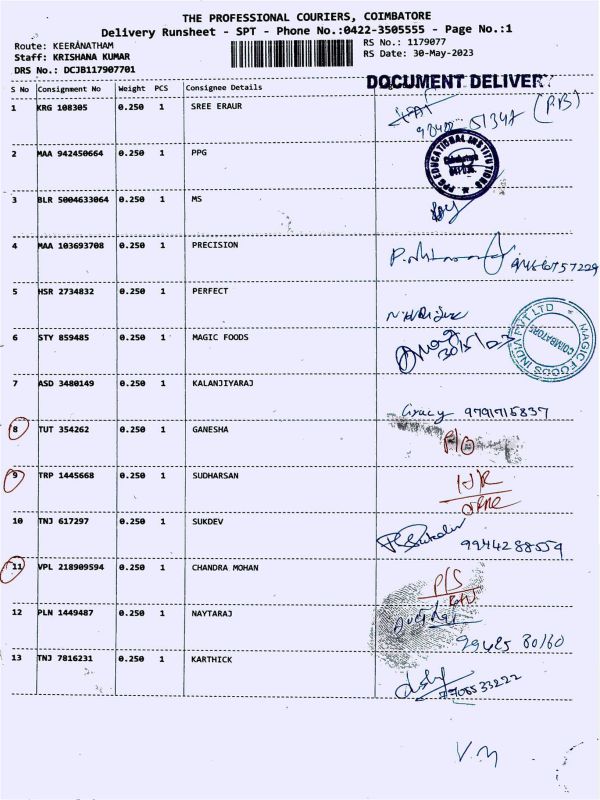 THE PROFESSIONAL COURIERS, COIMBATORE
Delivery Runsheet - SPT - Phone No.:0422-3505555 - Page No.:1
Route: KEERANATHAM
RS No.: 1179077
Staff: KRISHANA KUMAR
RS Date: 30-May-2023
DRS No.: DCJB117907701
DOCUMENT DELIVER
S No Consignment No Weight PCS Consignee Details
1 KRG 108305 0.250 1 SREE ERAUR
(RB)
2 MAA 942450664 0.250 1 PPG
PPG EDUCATIONAL INSTITUTIONS
3 BLR 5004633064 0.250 1 MS
4 MAA 103693708 0.250 1 PRECISION
5 HSR 2734832 0.250 1 PERFECT
6 STY 859485 0.250 1 MAGIC FOODS
30/5/23
MAGIC FOODS INDIA PVT LTD
COIMBATORE
7 ASD 3480149 0.250 1 KALANJIYARAJ
Gracy 9791715837
8 TUT 354262 0.250 1 GANESHA
9 TRP 1445668 0.250 1 SUDHARSAN
10 TNJ 617297 0.250 1 SUKDEV
9944288559
11 VPL 218909594 0.250 1 CHANDRA MOHAN
P/S
12 PLN 1449487 0.250 1 NAYTARAJ
99425 80160
13 TNJ 7816231 0.250 1 KARTHICK
7708533222
V.M